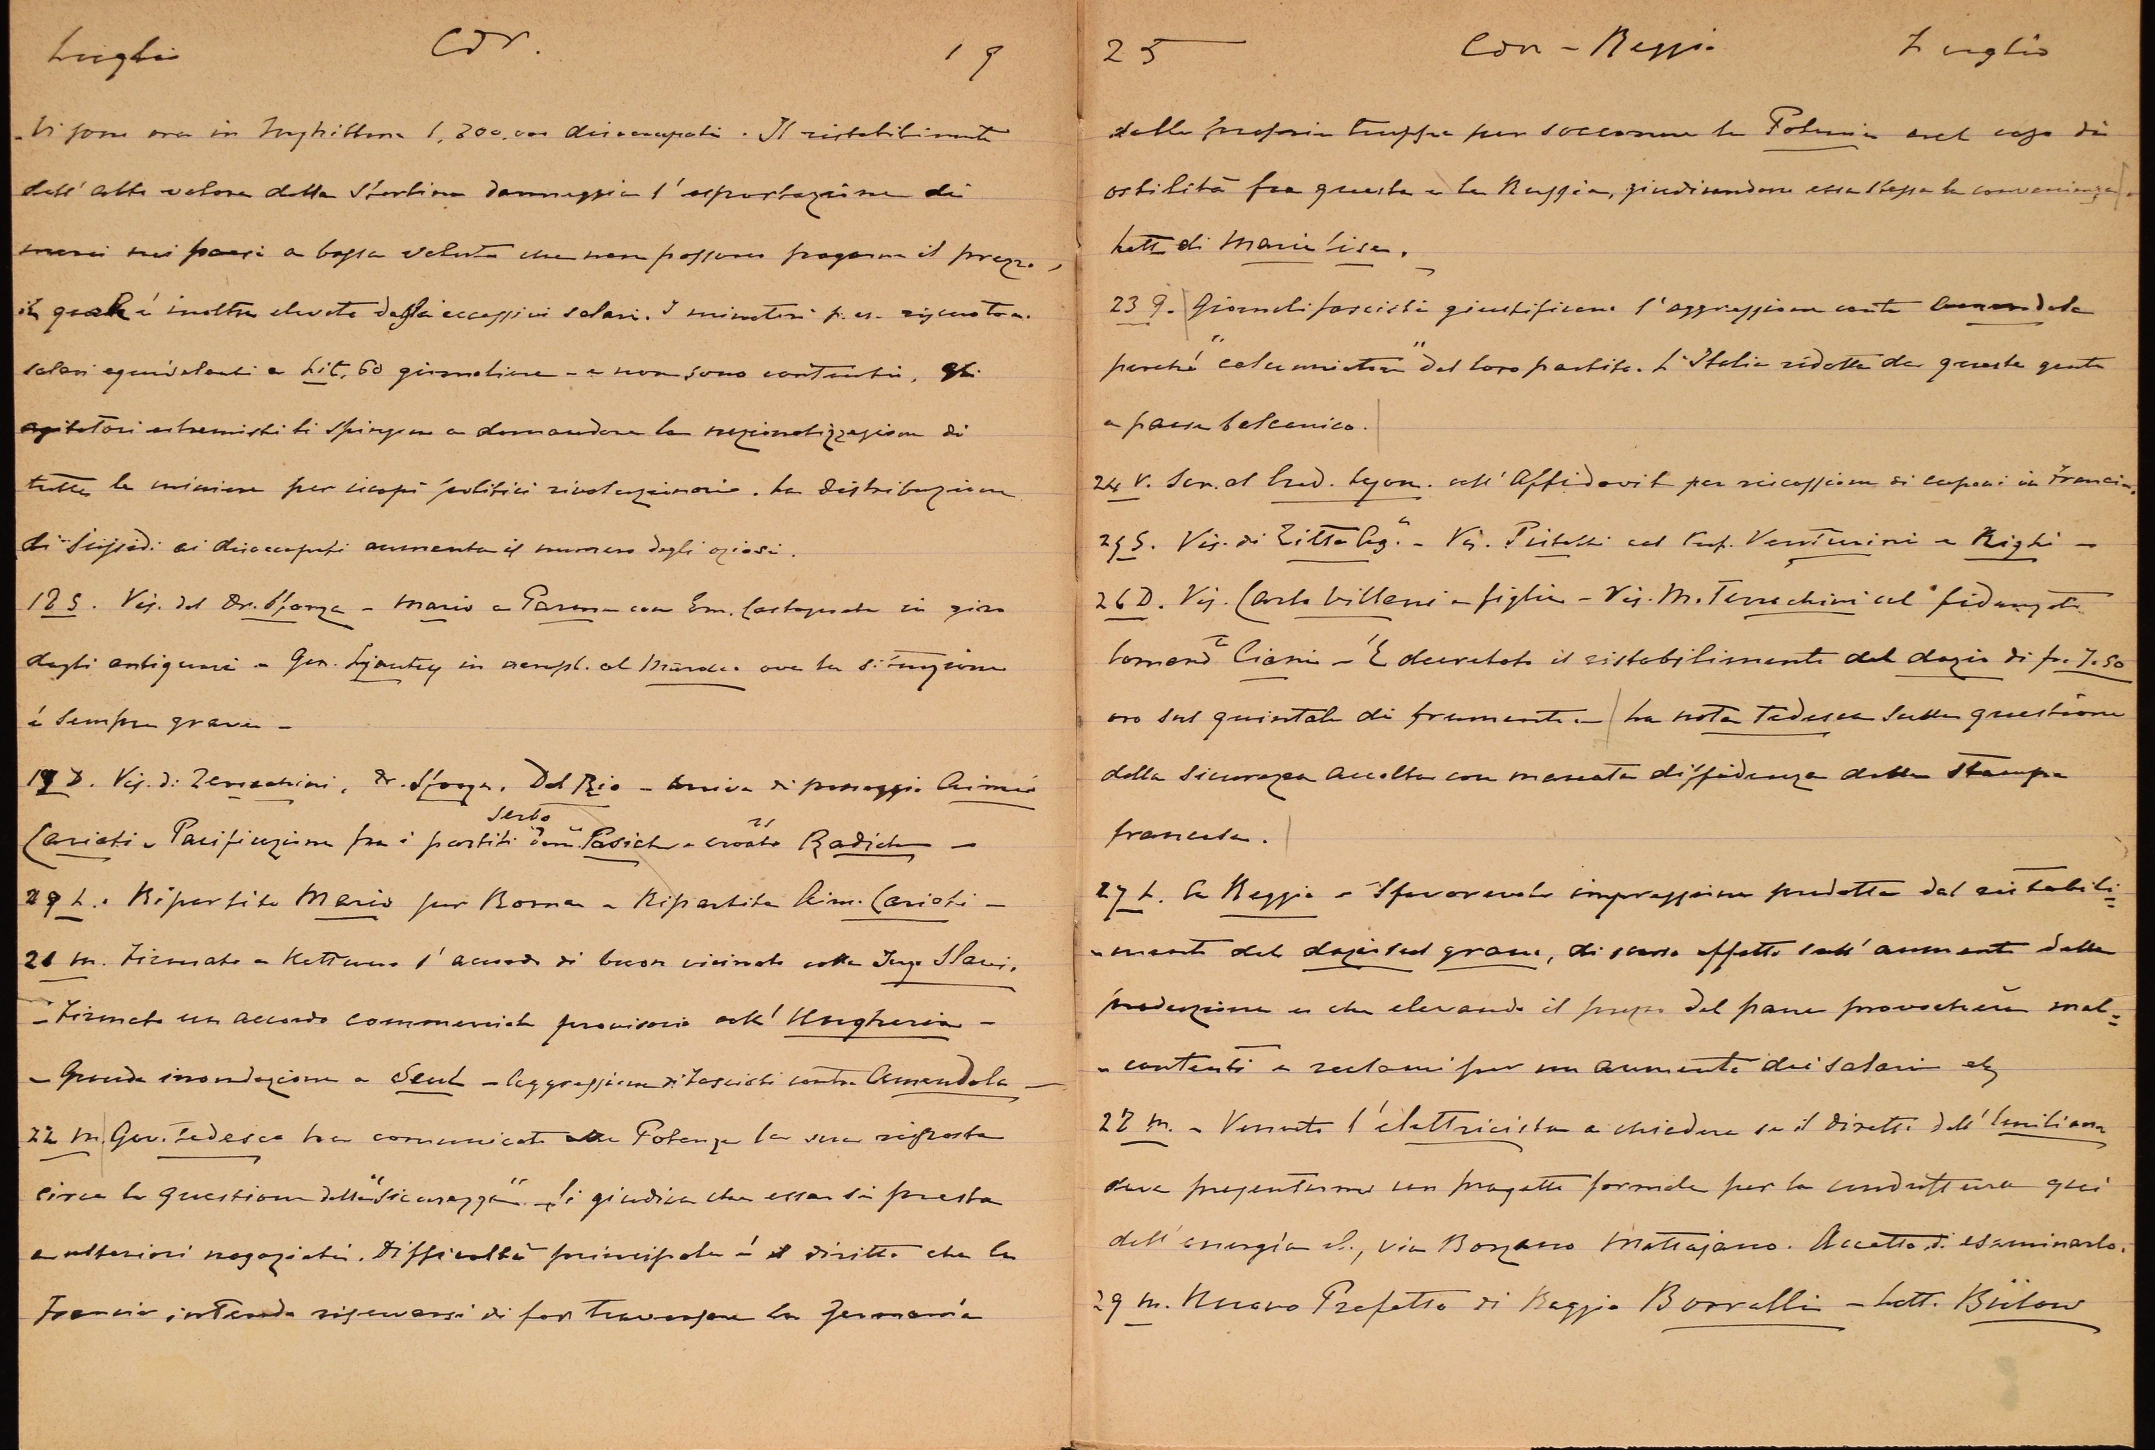 Luglio Cdr. 19
- Vi sono ora in Inghilterra 1,200,000 disoccupati. Il ristabilimento
dell'alto valore della Sterlina danneggia l'esportazione di
merci nei paesi a bassa valuta che non possono pagarne il prezzo,
il quale è inoltre elevato dagli eccessivi salari. I minatori p. es. riscuotono
salari equivalenti a Lit. 60 giornaliere - e non sono contenti. Gli
agitatori estremisti li spingono a domandare la nazionalizzazione di
tutte le miniere per scopi politici rivoluzionari. La distribuzione
di sussidi ai disoccupati aumenta il numero degli oziosi.
18 S. Vis. del Dr. Sforza - Mario a Parma con Em. Castagnola in giro
dagli antiquari - Gen. Lyautey in aeropl. al Marocco ove la situazione
è sempre grave -
19 D. Vis. di Terrachini, Dr. Sforza, Del Rio - Arriva di passaggio Aimée
Cariati - Pacificazione fra i partiti serbo Pasich e croato Radich -
20 L. Ripartito Mario per Roma - Ripartita Aim. Cariati -
21 M. Firmato a Nettuno l'accordo di buon vicinato colla Jugo Slavi.
- Firmato un accordo commerciale provvisorio coll'Ungheria -
- Grande inondazione a Seul - Aggressione di Fascisti contro Amendola -
22 M. Gov. Tedesco ha comunicato alle Potenze la sua risposta
circa la questione della "Sicurezza". Si giudica che essa si presta
a ulteriori negoziati. Difficoltà principale è il diritto che la
Francia intende riservarsi di far traversare la Germania
25 Cdr - Reggio Luglio
dalle proprie truppe per soccorrere la Polonia nel caso di
ostilità fra questa e la Russia, giudicandone essa stessa la convenienza.
Lett. di Maria Lisa.
23 G. Giornali fascisti giustificano l'aggressione contro Amendola
perché "calunniatore" del loro partito. L'Italia ridotta da questa gente
a paese balcanico.
24 V. Scr. al Cred. Lyon. coll'Affidavit per riscossione di cuponi in Francia.
25 S. Vis. di Zitta - Vis. col Prof. Venturini e Righi -
26 D. Vis. Carlo Villani e figlia - Vis. M. Terrachini col fidanzato
Ciani - È decretato il ristabilimento del dazio di fr. 7.50
oro sul quintale di frumento - La nota tedesca sulla questione
della sicurezza accolta con marcata diffidenza dalla stampa
francese.
27 L. A Reggio - Sfavorevole impressione prodotta dal ristabili-
-mento del dazio sul grano, di scarso effetto sull'aumento della
produzione e che elevando il prezzo del pane provocherà mal-
-contenti e reclami per un aumento dei salari etc
28 M. - Venuto l'elettricista a chiedere se il dirett. dell'Emiliana
deve presentarmi un progetto formale per la conduttura qui
dell'energia el., via Borzano Mattajano. Accetto di esaminarlo.
29 M. Nuovo Prefetto di Reggio Borralli - Lett. Bülow